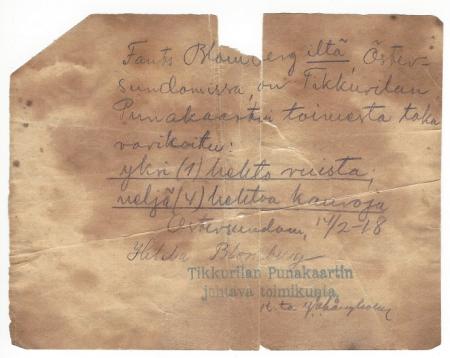 Fants Blomberg iltä Öster-
sundomissa, on Tikkurilan
Punakaartin toimesta taka
varikoitu:
yksi (1) hehto ruista;
neljä (4) hehtoa kauroja
Östersundom, 14/2-18
Hilda Blomberg
Tikkurilan Punakaartin
johtava toimikunta.